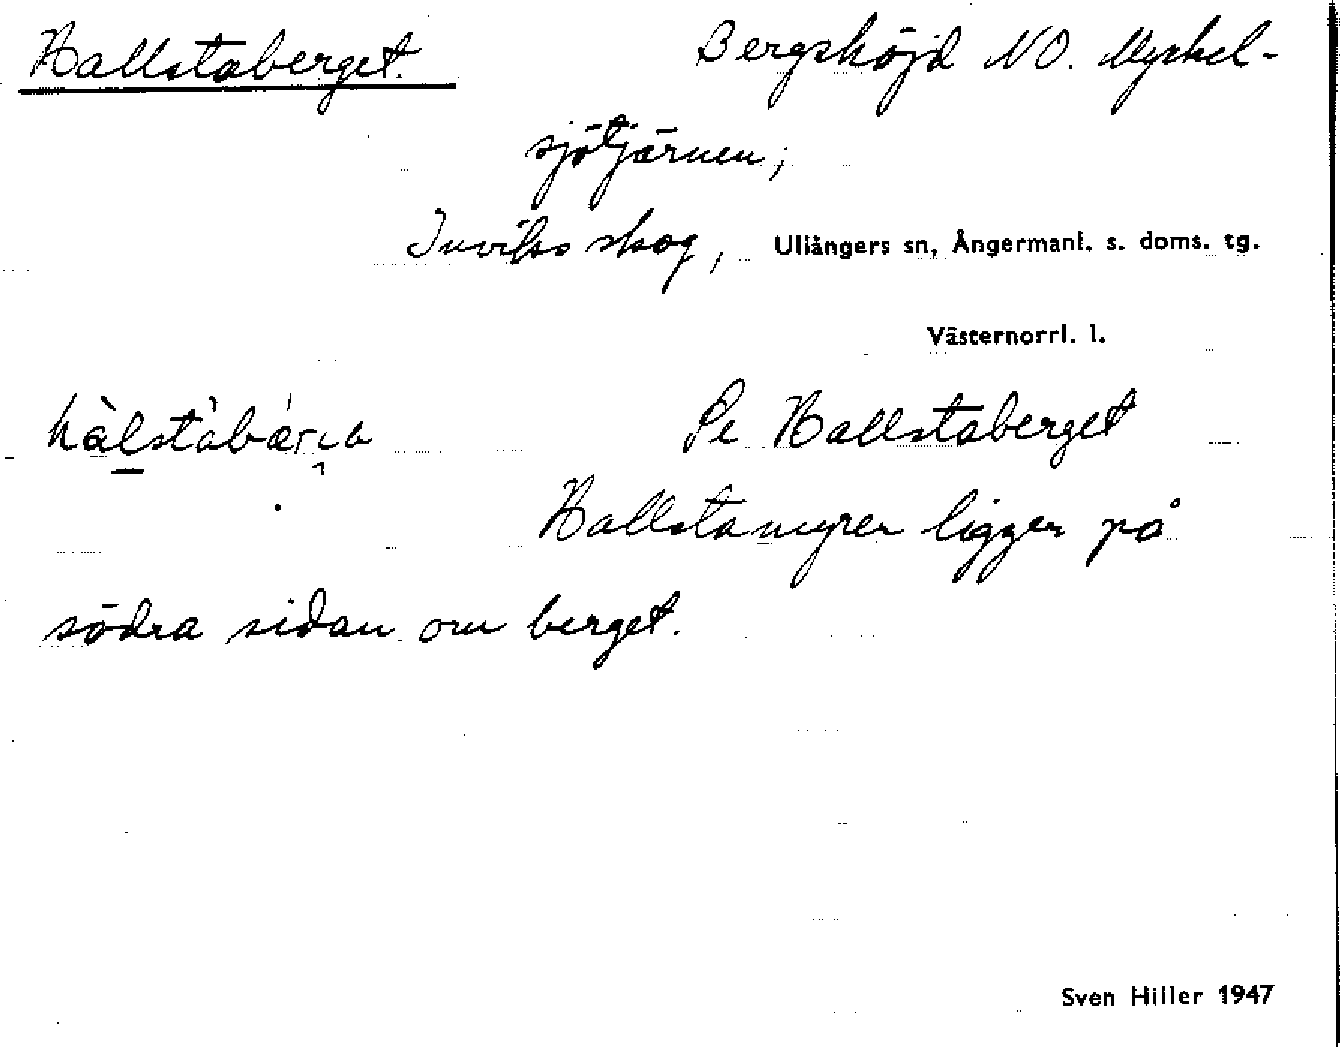 Hallstaberget. Bergshöjd NO. Myckel-
sjötjärnen;
Inviks skog, Ullångers sn, Ångermanl. s. doms. tg.
Västernorrl. l.
Pe Hallstaberget
Hallstamyren ligger på
södra sidan om berget.
Sven Hiller 1947